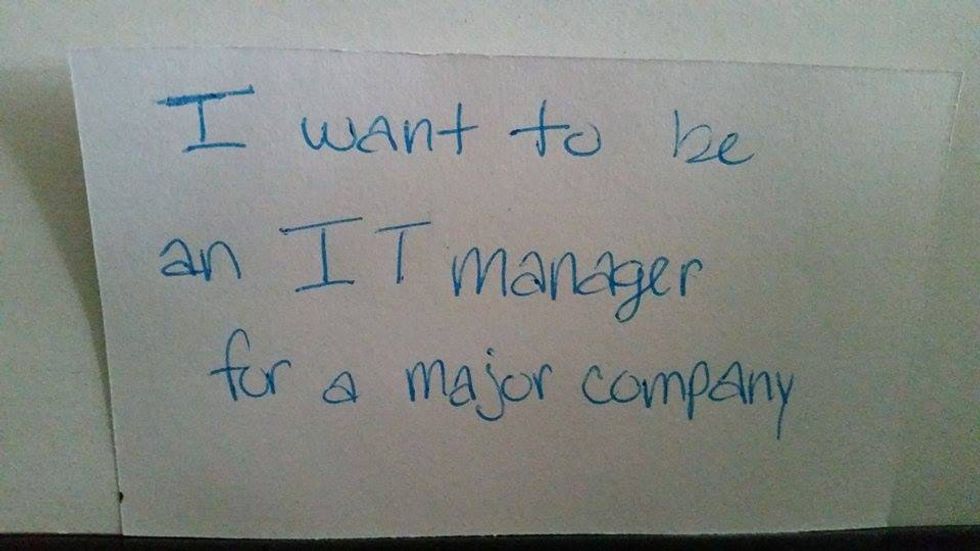 I want to be
an IT manager
for a major company